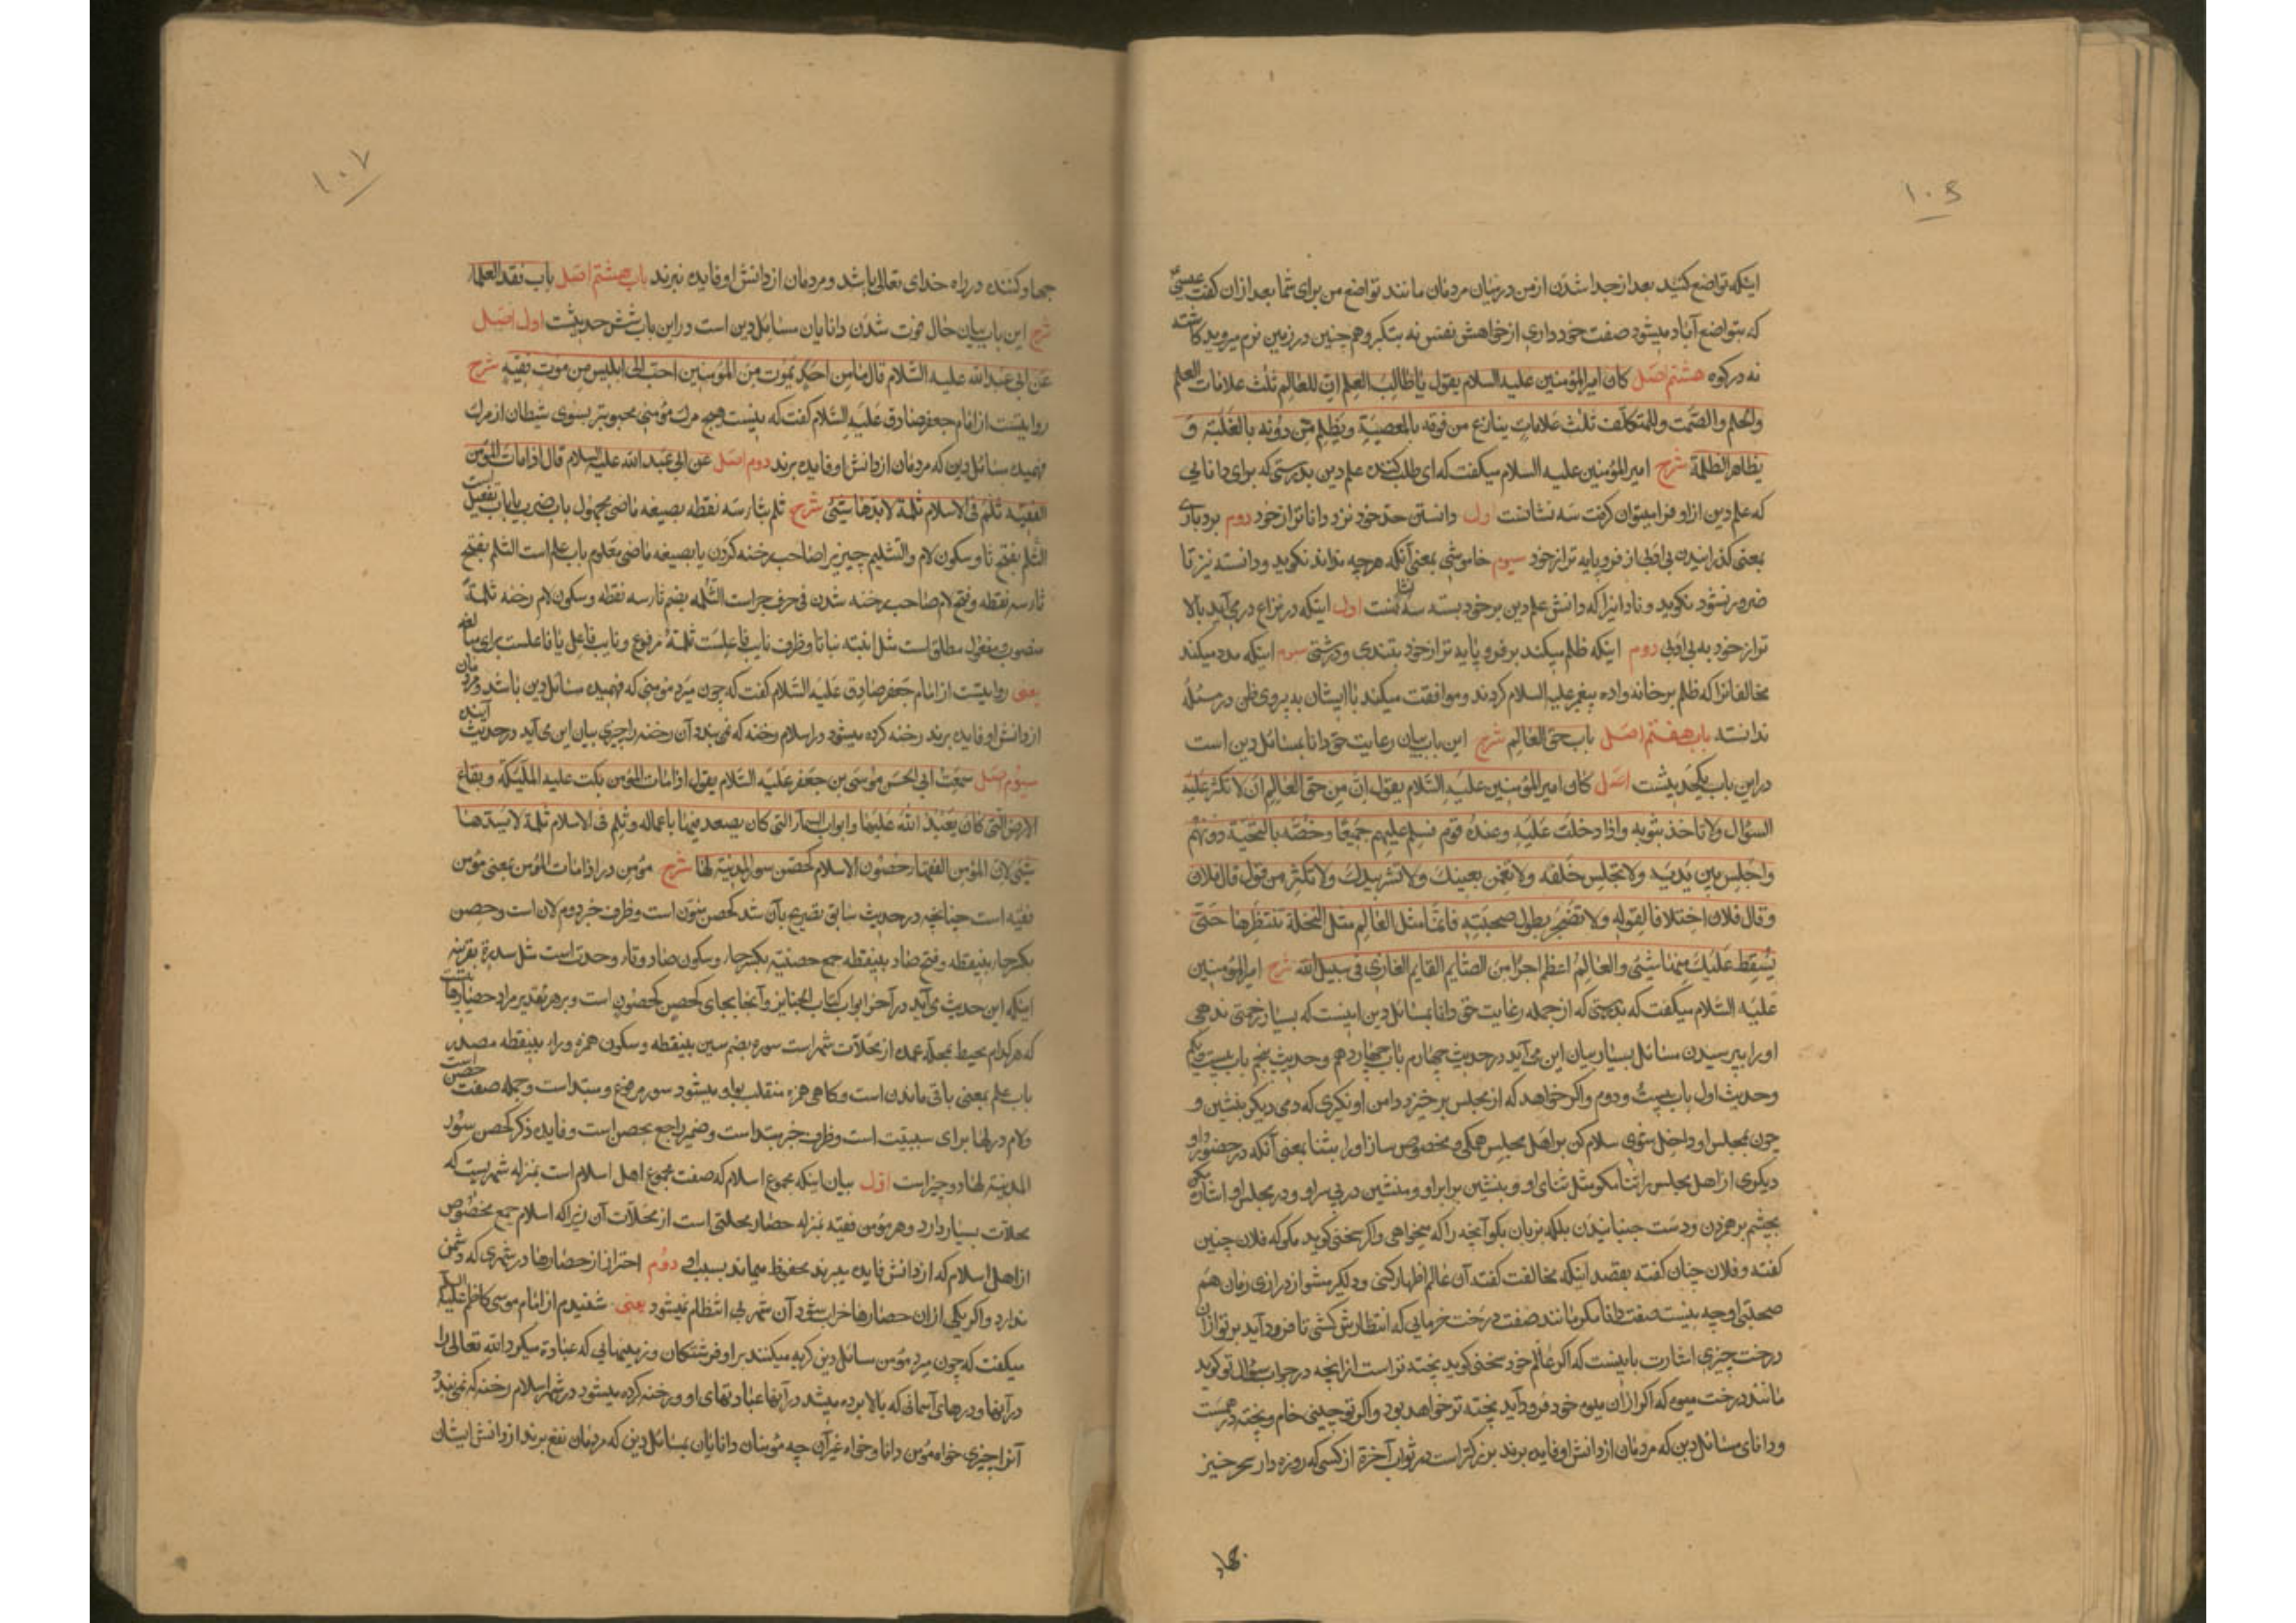 ۱۰۶
اینکه تواضع کنید بعد از جدا شدن از من در میان مردمان مانند تواضع من برای شما بعد از ان کفت عیسی
که بتواضع آباد میشود صفت خود داری از خواهش نفس نه بتکبر و هم چنین در زمین نرم میروید کاشته
نه در کوه هشتم اصل کان امیر المؤمنین علیه السلام یقول یا طالب العلم ان للعالم ثلث علامات العلم
والحلم والصمت وللمتکلف ثلث علامات ینازع من فوقه بالمعصیة ویظلم من دونه بالغلبة و
یظاهر الظلمة شرح امیر المؤمنین علیه السلام میکفت که ای طلب کننده علم دین بدرستی که برای دانایی
که علم دین از او فرا میتوان کرفت سه نشانست اول دانستن حد خود نزد داناتر از خود دوم بردباری
بمعنی کذرانیدن بی ادبی از فرو پایه تر از خود سیوم خاموشی بمعنی آنکه هرچه نداند نکوید و دانسته نیز تا
ضرور نشود نکوید و نادانیرا که دانش علم دین بر خود بسته سه نشانست اول اینکه در نزاع در می آید بالا
تر از خود به بی ادبی دوم اینکه ظلم میکند بر فرو پایه تر از خود بتندی و درشتی سیوم اینکه مدد میکند
مخالفانرا که ظلم بر خانه واده پیغمبر علیه السلام کردند و موافقت میکند با ایشان به پیروی ظن در مسئله
ندانسته باب هفتم اصل باب حق العالم شرح این باب بیان رعایت حق دانا بمسائل دین است
در این باب یکحدیثست اصل کان امیر المؤمنین علیه السلام یقول ان من حق العالم ان لا تکثر علیه
السؤال ولا تاخذ بثوبه واذا دخلت علیه وعنده قوم فسلم علیهم جمیعا وخصه بالتحیة دونهم
واجلس بین یدیه ولا تجلس خلفه ولا تغمز بعینک ولا تشر بیدک ولا تکثر من قول قال فلان
وقال فلان اختلافا لقوله ولا تضجر بطول صحبته فانما مثل العالم مثل النخلة تنتظرها حتی
یسقط علیک منها شئ والعالم اعظم اجرا من الصایم القایم الغازی فی سبیل الله شرح امیر المؤمنین
علیه السلام میکفت که بدرستی که از جمله رعایت حق دانا بمسائل دین اینست که بسیار زحمتی ندهی
او را بپرسیدن مسائل بسیار بیان این می آید در حدیث چهارم باب چهاردهم و حدیث پنجم باب بیست و یکم
وحدیث اول باب بیست و دوم واکر خواهد که از مجلس بر خیزد دامن او نکیری که دمی دیکر بنشین و
چون بمجلس او داخل شوی سلام کن بر اهل مجلس همکی و مخصوص ساز او را بثنا بمعنی آنکه در حضور او
دیکری از اهل مجلس را ثنا مکو مثل ثنای او و بنشین برابر او و منشین در پی سر او و در مجلس او اشاره مکن
بچشم بر هم زدن و دست جنبانیدن بلکه بزبان بکو آنچه را که میخواهی واکر سخنی کوید مکو که فلان چنین
کفته و فلان چنان کفته بقصد اینکه مخالفت کفته آن عالم اظهار کنی و دلکیر مشو از درازی زمان هم
صحبتی او چه نیست صفت دانا مکر مانند صفت درخت خرمایی که انتظارش کشی تا فرود آید بر تو از ان
درخت چیزی اشارت باینست که اکر عالم خود سخنی کوید پخته تر است از انچه در جواب سؤال تو کوید
مانند درخت میوه که اکر از ان میوه خود فرود آید پخته تر خواهد بود واکر تو چینی خام و پخته در همست
و دانای مسائل دین که مردمان از دانش او فایده برند بزرکتر است در ثواب آخرة از کسی که روزه دار سحر خیز
جهاد
۱۰۷
جهاد کننده در راه خدای تعالی باشد و مردمان از دانش او فایده نبرند باب هشتم اصل باب فقد العلماء
شرح این باب بیان حال فوت شدن دانایان مسائل دین است و در این باب شش حدیثست اول اصل
عن ابی عبد الله علیه السلام قال ما من احد یموت من المؤمنین احب الی ابلیس من موت فقیه شرح
روایتست از امام جعفر صادق علیه السلام کفت که نیست هیچ مرک مؤمنی محبوبتر بسوی شیطان از مرک
فهمیده مسائل دین که مردمان از دانش او فایده برند دوم اصل عن ابی عبد الله علیه السلام قال اذا مات المؤمن
الفقیه ثلم فی الاسلام ثلمة لا یسدها شئ شرح ثلم بثاء سه نقطه بصیغه ماضی مجهول باب ضرب یا باب تفعیل است
الثلم بفتح ثا و سکون لام والتثلیم چیزیرا صاحب رخنه کردن یا بصیغه ماضی معلوم باب علم است الثلم بفتح
ثاء سه نقطه و فتح لام صاحب رخنه شدن فی حرف جر است الثلمه بضم ثاء سه نقطه و سکون لام رخنه ثلمة
منصوب مفعول مطلق است مثل انبته نباتا و ظرف نایب فاعلست ثلمة مرفوع و نایب فاعل یا فاعلست برای مبالغه
یعنی روایتست از امام جعفر صادق علیه السلام کفت که چون میرد مؤمنی که فهمیده مسائل دین باشد و مردمان
از دانش او فایده برند رخنه کرده میشود در اسلام رخنه که نمی بندد آن رخنه را چیزی بیان این می آید در حدیث آینده
سیوم اصل سمعت ابی الحسن موسی بن جعفر علیه السلام یقول اذا مات المؤمن بکت علیه الملئکة و بقاع
الارض التی کان یعبد الله علیها وابواب السماء التی کان یصعد فیها باعماله وثلم فی الاسلام ثلمة لا یسدها
شئ لان المؤمن الفقهاء حصون الاسلام کحصن سور المدینة لها شرح مؤمن در اذا مات المؤمن بمعنی مؤمن
فقیه است چنانچه در حدیث سابق تصریح بآن شد کحصن بتنوین است و ظرف خبر دوم لان است و حصن
بکسر حاء بینقطه و فتح صاد بینقطه جمع حصنة بکسر حاء و سکون صاد و تاء وحدت است مثل سدرة بقرینه
اینکه این حدیث می آید در آخر ابواب کتاب الجنایز و آنجا بجای کحصن کحصون است و بر هر تقدیر مراد
که هر کدام محیط بمحله عمده از محلات شهر است سوره بضم سین بینقطه و سکون همزه و راء بینقطه مصدر
باب علم بمعنی باقی ماندن است و کاهی همزه منقلب بواو میشود سور مرفوع و مبتداست و جمله صفت حصن است
ولام در لها برای سببیت است و ظرف خبر مبتداست و ضمیر راجع بحصن است و فایده ذکر کحصن سور
المدینة لها دو چیز است اول بیان اینکه مجموع اسلام که صفت مجموع اهل اسلام است بمنزله شهریست که
محلات بسیار دارد و هر مؤمن فقیه بمنزله حصار محلتی است از محلات آن زیرا که اسلام جمع مخصوص
از اهل اسلام که از دانش فایده میبرند محفوظ میماند بسبب او دوم احتراز از حصارها در شهری که دشمن
ندارد واکر یکی از ان حصارها خراب شود آن شهر بی انتظام نمیشود یعنی شنیدم از امام موسی کاظم علیه السلام
میکفت که چون میرد مؤمن مسائل دین کریه میکنند بر او فرشتکان و زمینهایی که عبادة میکرد الله تعالی را
در آنها و درهای آسمانی که بالا برده میشد در آنها عبادتهای او و رخنه کرده میشود در شهر اسلام رخنه که نمی بندد
آنرا چیزی خواه مؤمن دانا و خواه غیر آن چه مؤمنان دانایان بمسائل دین که مردمان نفع برند از دانش ایشان